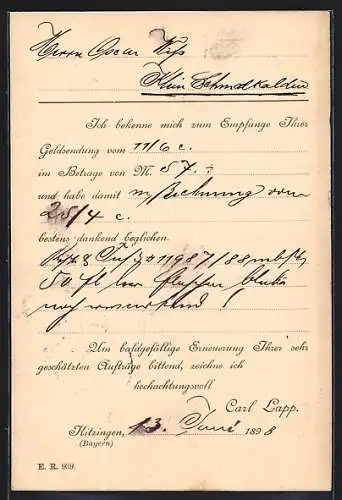 Herrn Oscar
Klein Schmalkalden
Ich bekenne mich zum Empfange Ihrer
Geldsendung vom 11/6 c.
im Betrage von M. 57.÷
und habe damit m/Rechnung vom
25/4 c.
bestens dankend beglichen.
# 11987/88
50 leere Flaschen
noch
Um baldgefällige Erneuerung Ihrer sehr
geschätzten Aufträge bittend, zeichne ich
hochachtungsvoll
Carl Lapp.
Kitzingen, 13. Juni 1898
(Bayern)
E. R. 939.